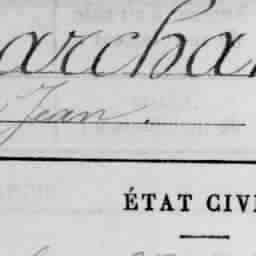 archa
Jean.
ÉTAT CIVI